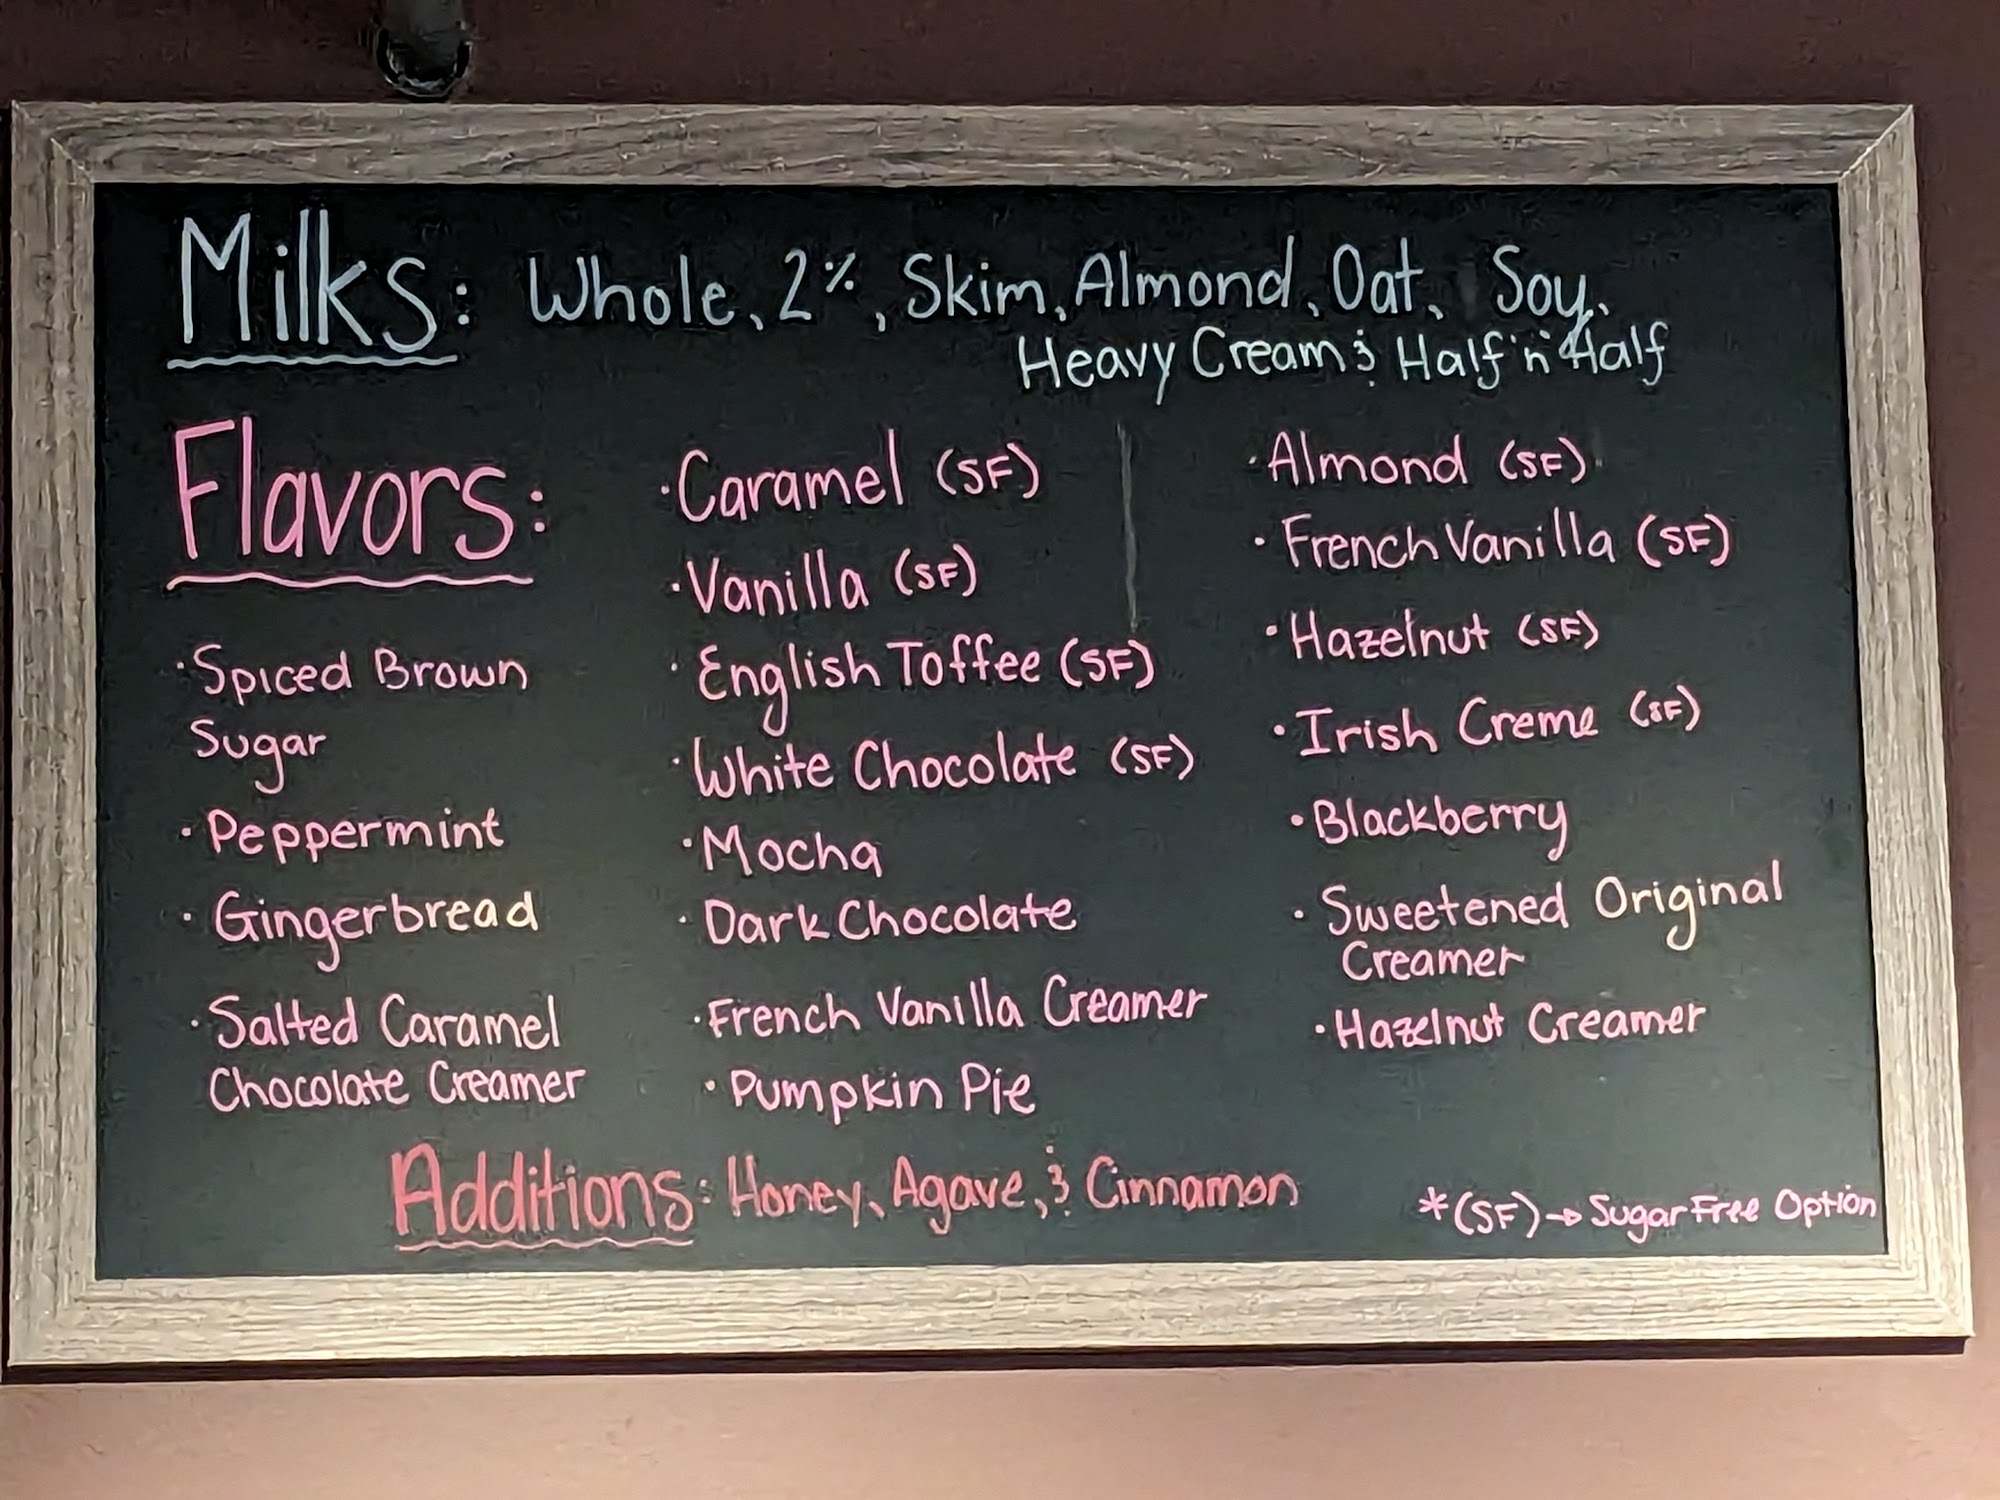 Milks: Whole, 2%, Skim, Almond, Oat, Soy,
Heavy Cream & Half 'n' Half
Flavors:
· Spiced Brown
Sugar
· Peppermint
· Gingerbread
· Salted Caramel
Chocolate Creamer
· Caramel (SF)
· Vanilla (SF)
· English Toffee (SF)
· White Chocolate (SF)
· Mocha
· Dark Chocolate
· French Vanilla Creamer
· Pumpkin Pie
· Almond (SF)
· French Vanilla (SF)
· Hazelnut (SF)
· Irish Creme (SF)
· Blackberry
· Sweetened Original
Creamer
· Hazelnut Creamer
Additions: Honey, Agave, & Cinnamon
*(SF)→ Sugar Free Option